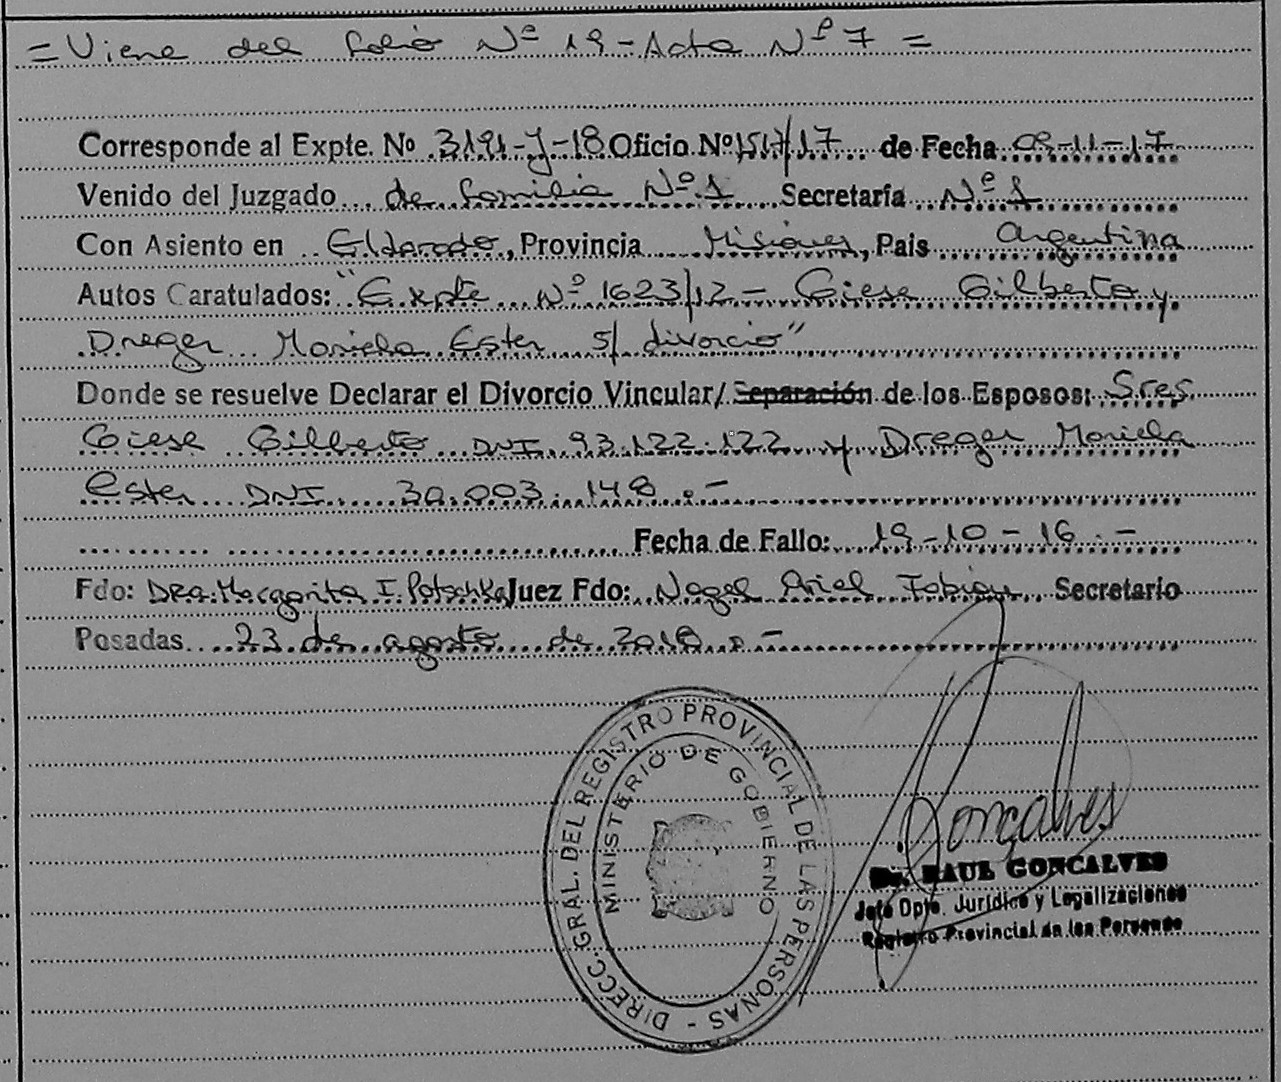 = Viene del folio Nº 19 - Acta Nº 7 =
Corresponde al Expte. Nº 3191-J-18 Oficio Nº 1517/17 de Fecha 09-11-17
Venido del Juzgado de familia Nº 1 Secretaría Nº 1
Con Asiento en Eldorado, Provincia Misiones, País Argentina
Autos Caratulados: "Expte Nº 1623/12 - Giese Gilberto y
Dreger Mariela Ester s/ divorcio"
Donde se resuelve Declarar el Divorcio Vincular/ Separación de los Esposos: Sres.
Giese Gilberto DNI 93.122.122 y Dreger Mariela
Ester DNI 30.003.148.-
Fecha de Fallo: 19-10-16.-
Fdo: DRA. Margarita I. Potschka Juez Fdo: Nagel Ariel Fabian Secretario
Posadas 23 de agosto de 2018.-
DIRECC. GRAL. DEL REGISTRO PROVINCIAL DE LAS PERSONAS -
MINISTERIO DE GOBIERNO
Gonçalves
Dr. RAUL GONCALVES
Jefe Dpto. Jurídico y Legalizaciones
Registro Provincial de las Personas